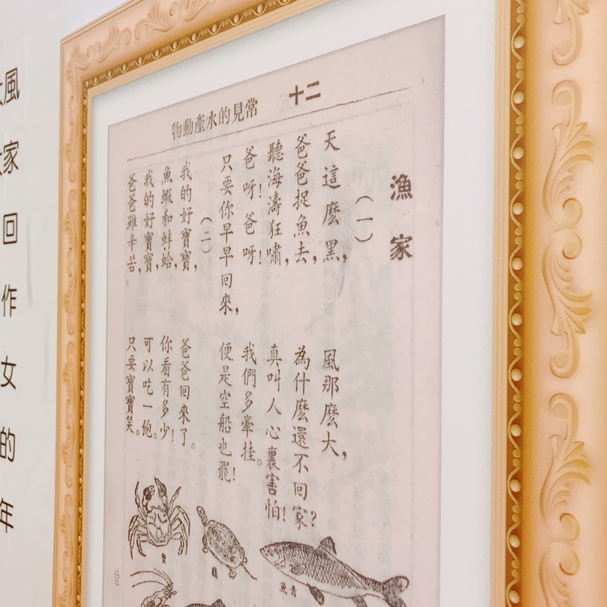 二十
常見的水產動物
漁家
(一)
天這麽黑, 風那麽大,
爸爸捉魚去, 為什麽還不回家?
聽海濤狂嘯, 真叫人心裏害怕!
爸呀!爸呀! 我們多牽挂。
只要你早早回來, 便是空船也罷!
(二)
我的好寶寶, 爸爸回來了。
魚蝦和蚌蛤, 你看有多少!
我的好寶寶, 可以吃一飽。
爸爸雖辛苦, 只要寶寶笑。
青魚
龜
蟹
風家回作女的年